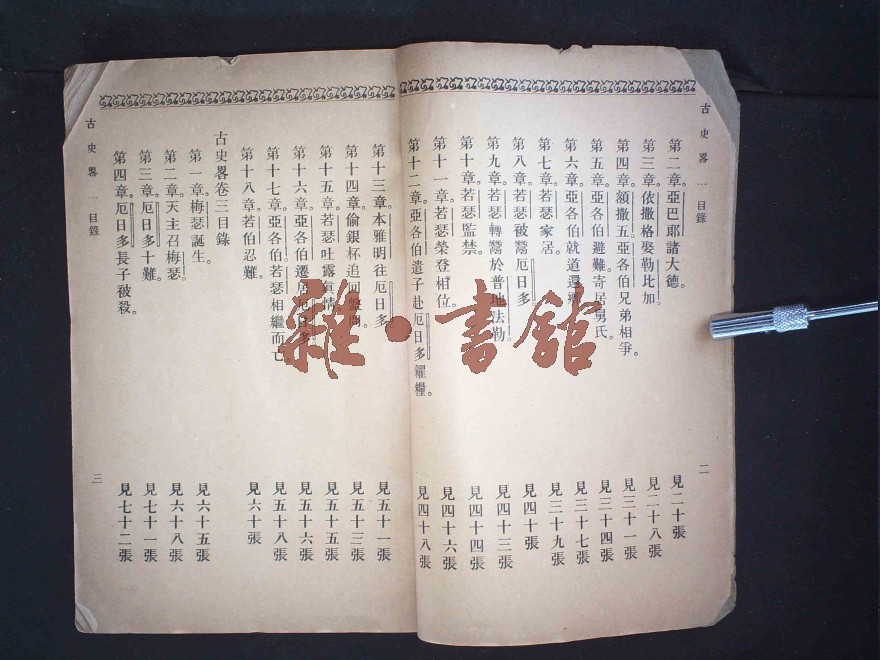 古史畧 … 目錄
第二章。亞巴郎諸大德。 見二十張
第三章。依撒格娶勒比加。 見二十八張
第四章。額撒五亞各伯兄弟相爭。 見三十一張
第五章。亞各伯避難寄居舅氏。 見三十四張
第六章。亞各伯就道還鄉。 見三十七張
第七章。若瑟家居。 見三十九張
第八章。若瑟被鬻厄日多。 見四十張
第九章。若瑟轉鬻於普地法勒。 見四十三張
第十章。若瑟監禁。 見四十四張
第十一章。若瑟榮登相位。 見四十六張
第十二章。亞各伯遣子赴厄日多糴糧。 見四十八張
二
第十三章。本雅明往厄日多。 見五十一張
第十四章。偷銀杯追回盤問。 見五十三張
第十五章。若瑟吐露眞情。 見五十五張
第十六章。亞各伯遷居厄日多。 見五十六張
第十七章。亞各伯若瑟相繼而亡。 見五十八張
第十八章。若伯忍難。 見六十張
古史畧卷三目錄
第一章。梅瑟誕生。 見六十五張
第二章。天主召梅瑟。 見六十八張
第三章。厄日多十難。 見七十一張
第四章。厄日多長子被殺。 見七十二張
古史畧 … 目錄
三
雜·書館